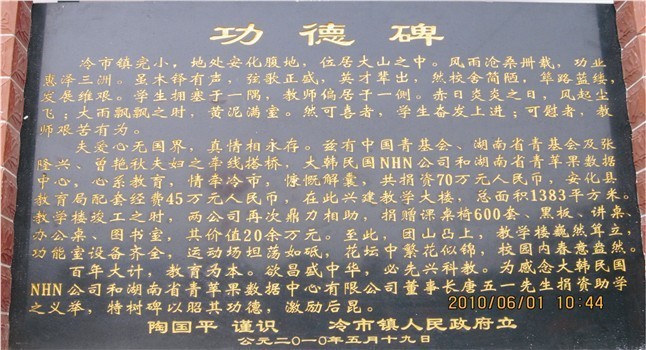 功德碑
冷市镇完小，地处安化腹地，位居大山之中。风雨沧桑卅载，功业
惠泽三洲。虽木铎有声，弦歌正盛，英才辈出，然校舍简陋，筚路蓝缕，
发展维艰。学生拥塞于一隅，教师偏居于一侧。赤日炎炎之日，风起尘
飞；大雨飘飘之时，黄泥满室。然可喜者，学生奋发上进；可慰者，教
师艰苦有为。
夫爱心无国界，真情相永存。兹有中国青基会、湖南省青基会及张
隆兴、曾艳秋夫妇之牵线搭桥，大韩民国NHN公司和湖南省青苹果数据
中心，心系教育，情牵冷市，慷慨解囊，共捐资70万元人民币，安化县
教育局配套经费45万元人民币，在此兴建教学大楼，总面积1383平方米。
教学楼竣工之时，两公司再次鼎力相助，捐赠课桌椅600套、黑板、讲桌、
办公桌、图书室，其价值20余万元。至此，团山凸上，教学楼巍然耸立，
功能室设备齐全，运动场坦荡如砥，花坛中繁花似锦，校园内春意盎然。
百年大计，教育为本。欲昌盛中华，必先兴科教。为感念大韩民国
NHN公司和湖南省青苹果数据中心有限公司董事长唐五一先生捐资助学
之义举，特树碑以昭其功德，激励后昆。
陶国平 谨识 冷市镇人民政府立
公元二〇一〇年五月十九日
2010/06/01 10:44